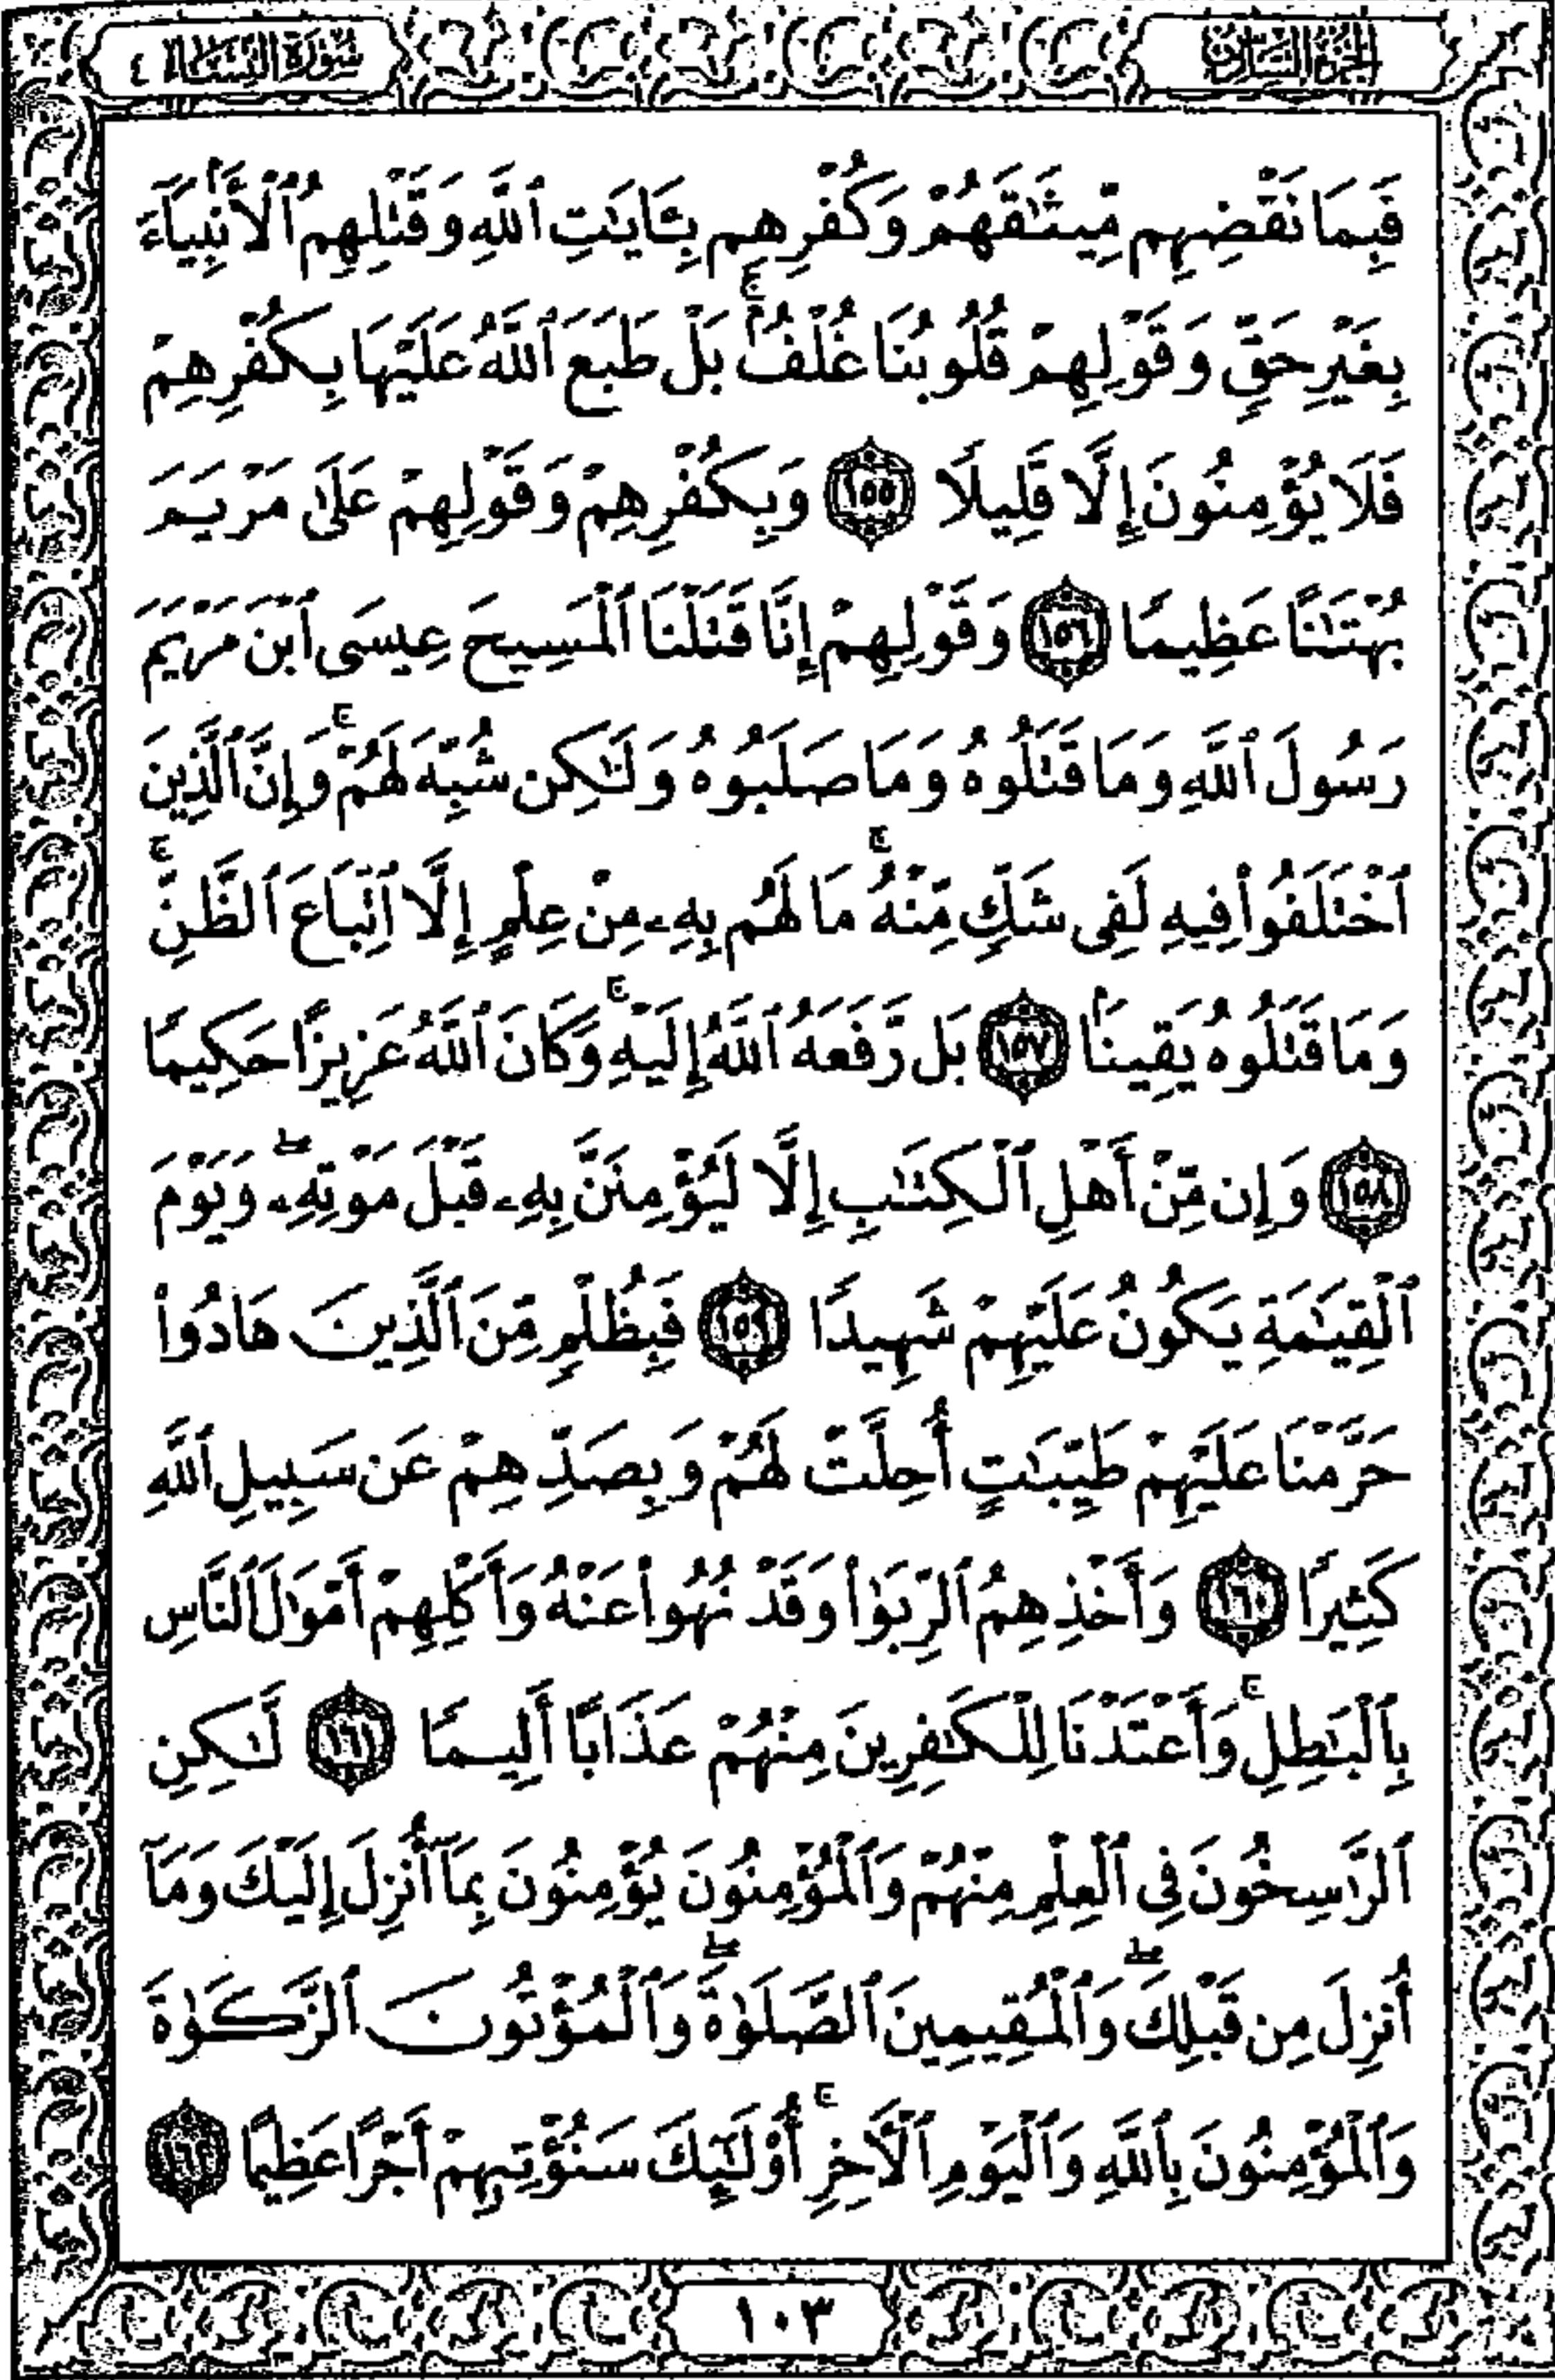 الجزء السادس
سورة النساء ٤
فَبِمَا نَقْضِهِم مِّيثَٰقَهُمْ وَكُفْرِهِم بِـَٔايَٰتِ ٱللَّهِ وَقَتْلِهِمُ ٱلْأَنۢبِيَآءَ
بِغَيْرِ حَقٍّ وَقَوْلِهِمْ قُلُوبُنَا غُلْفٌۢ ۚ بَلْ طَبَعَ ٱللَّهُ عَلَيْهَا بِكُفْرِهِمْ
فَلَا يُؤْمِنُونَ إِلَّا قَلِيلًا ١٥٥ وَبِكُفْرِهِمْ وَقَوْلِهِمْ عَلَىٰ مَرْيَمَ
بُهْتَٰنًا عَظِيمًا ١٥٦ وَقَوْلِهِمْ إِنَّا قَتَلْنَا ٱلْمَسِيحَ عِيسَى ٱبْنَ مَرْيَمَ
رَسُولَ ٱللَّهِ وَمَا قَتَلُوهُ وَمَا صَلَبُوهُ وَلَٰكِن شُبِّهَ لَهُمْ ۚ وَإِنَّ ٱلَّذِينَ
ٱخْتَلَفُوا۟ فِيهِ لَفِى شَكٍّ مِّنْهُ ۚ مَا لَهُم بِهِۦ مِنْ عِلْمٍ إِلَّا ٱتِّبَاعَ ٱلظَّنِّ ۚ
وَمَا قَتَلُوهُ يَقِينًۢا ١٥٧ بَل رَّفَعَهُ ٱللَّهُ إِلَيْهِ ۚ وَكَانَ ٱللَّهُ عَزِيزًا حَكِيمًا
١٥٨ وَإِن مِّنْ أَهْلِ ٱلْكِتَٰبِ إِلَّا لَيُؤْمِنَنَّ بِهِۦ قَبْلَ مَوْتِهِۦ ۖ وَيَوْمَ
ٱلْقِيَٰمَةِ يَكُونُ عَلَيْهِمْ شَهِيدًا ١٥٩ فَبِظُلْمٍ مِّنَ ٱلَّذِينَ هَادُوا۟
حَرَّمْنَا عَلَيْهِمْ طَيِّبَٰتٍ أُحِلَّتْ لَهُمْ وَبِصَدِّهِمْ عَن سَبِيلِ ٱللَّهِ
كَثِيرًا ١٦٠ وَأَخْذِهِمُ ٱلرِّبَوٰا۟ وَقَدْ نُهُوا۟ عَنْهُ وَأَكْلِهِمْ أَمْوَٰلَ ٱلنَّاسِ
بِٱلْبَٰطِلِ ۚ وَأَعْتَدْنَا لِلْكَٰفِرِينَ مِنْهُمْ عَذَابًا أَلِيمًا ١٦١ لَّٰكِنِ
ٱلرَّٰسِخُونَ فِى ٱلْعِلْمِ مِنْهُمْ وَٱلْمُؤْمِنُونَ يُؤْمِنُونَ بِمَآ أُنزِلَ إِلَيْكَ وَمَآ
أُنزِلَ مِن قَبْلِكَ ۖ وَٱلْمُقِيمِينَ ٱلصَّلَوٰةَ ۖ وَٱلْمُؤْتُونَ ٱلزَّكَوٰةَ
وَٱلْمُؤْمِنُونَ بِٱللَّهِ وَٱلْيَوْمِ ٱلْءَاخِرِ ۚ أُو۟لَٰٓئِكَ سَنُؤْتِيهِمْ أَجْرًا عَظِيمًا ١٦٢
١٠٣